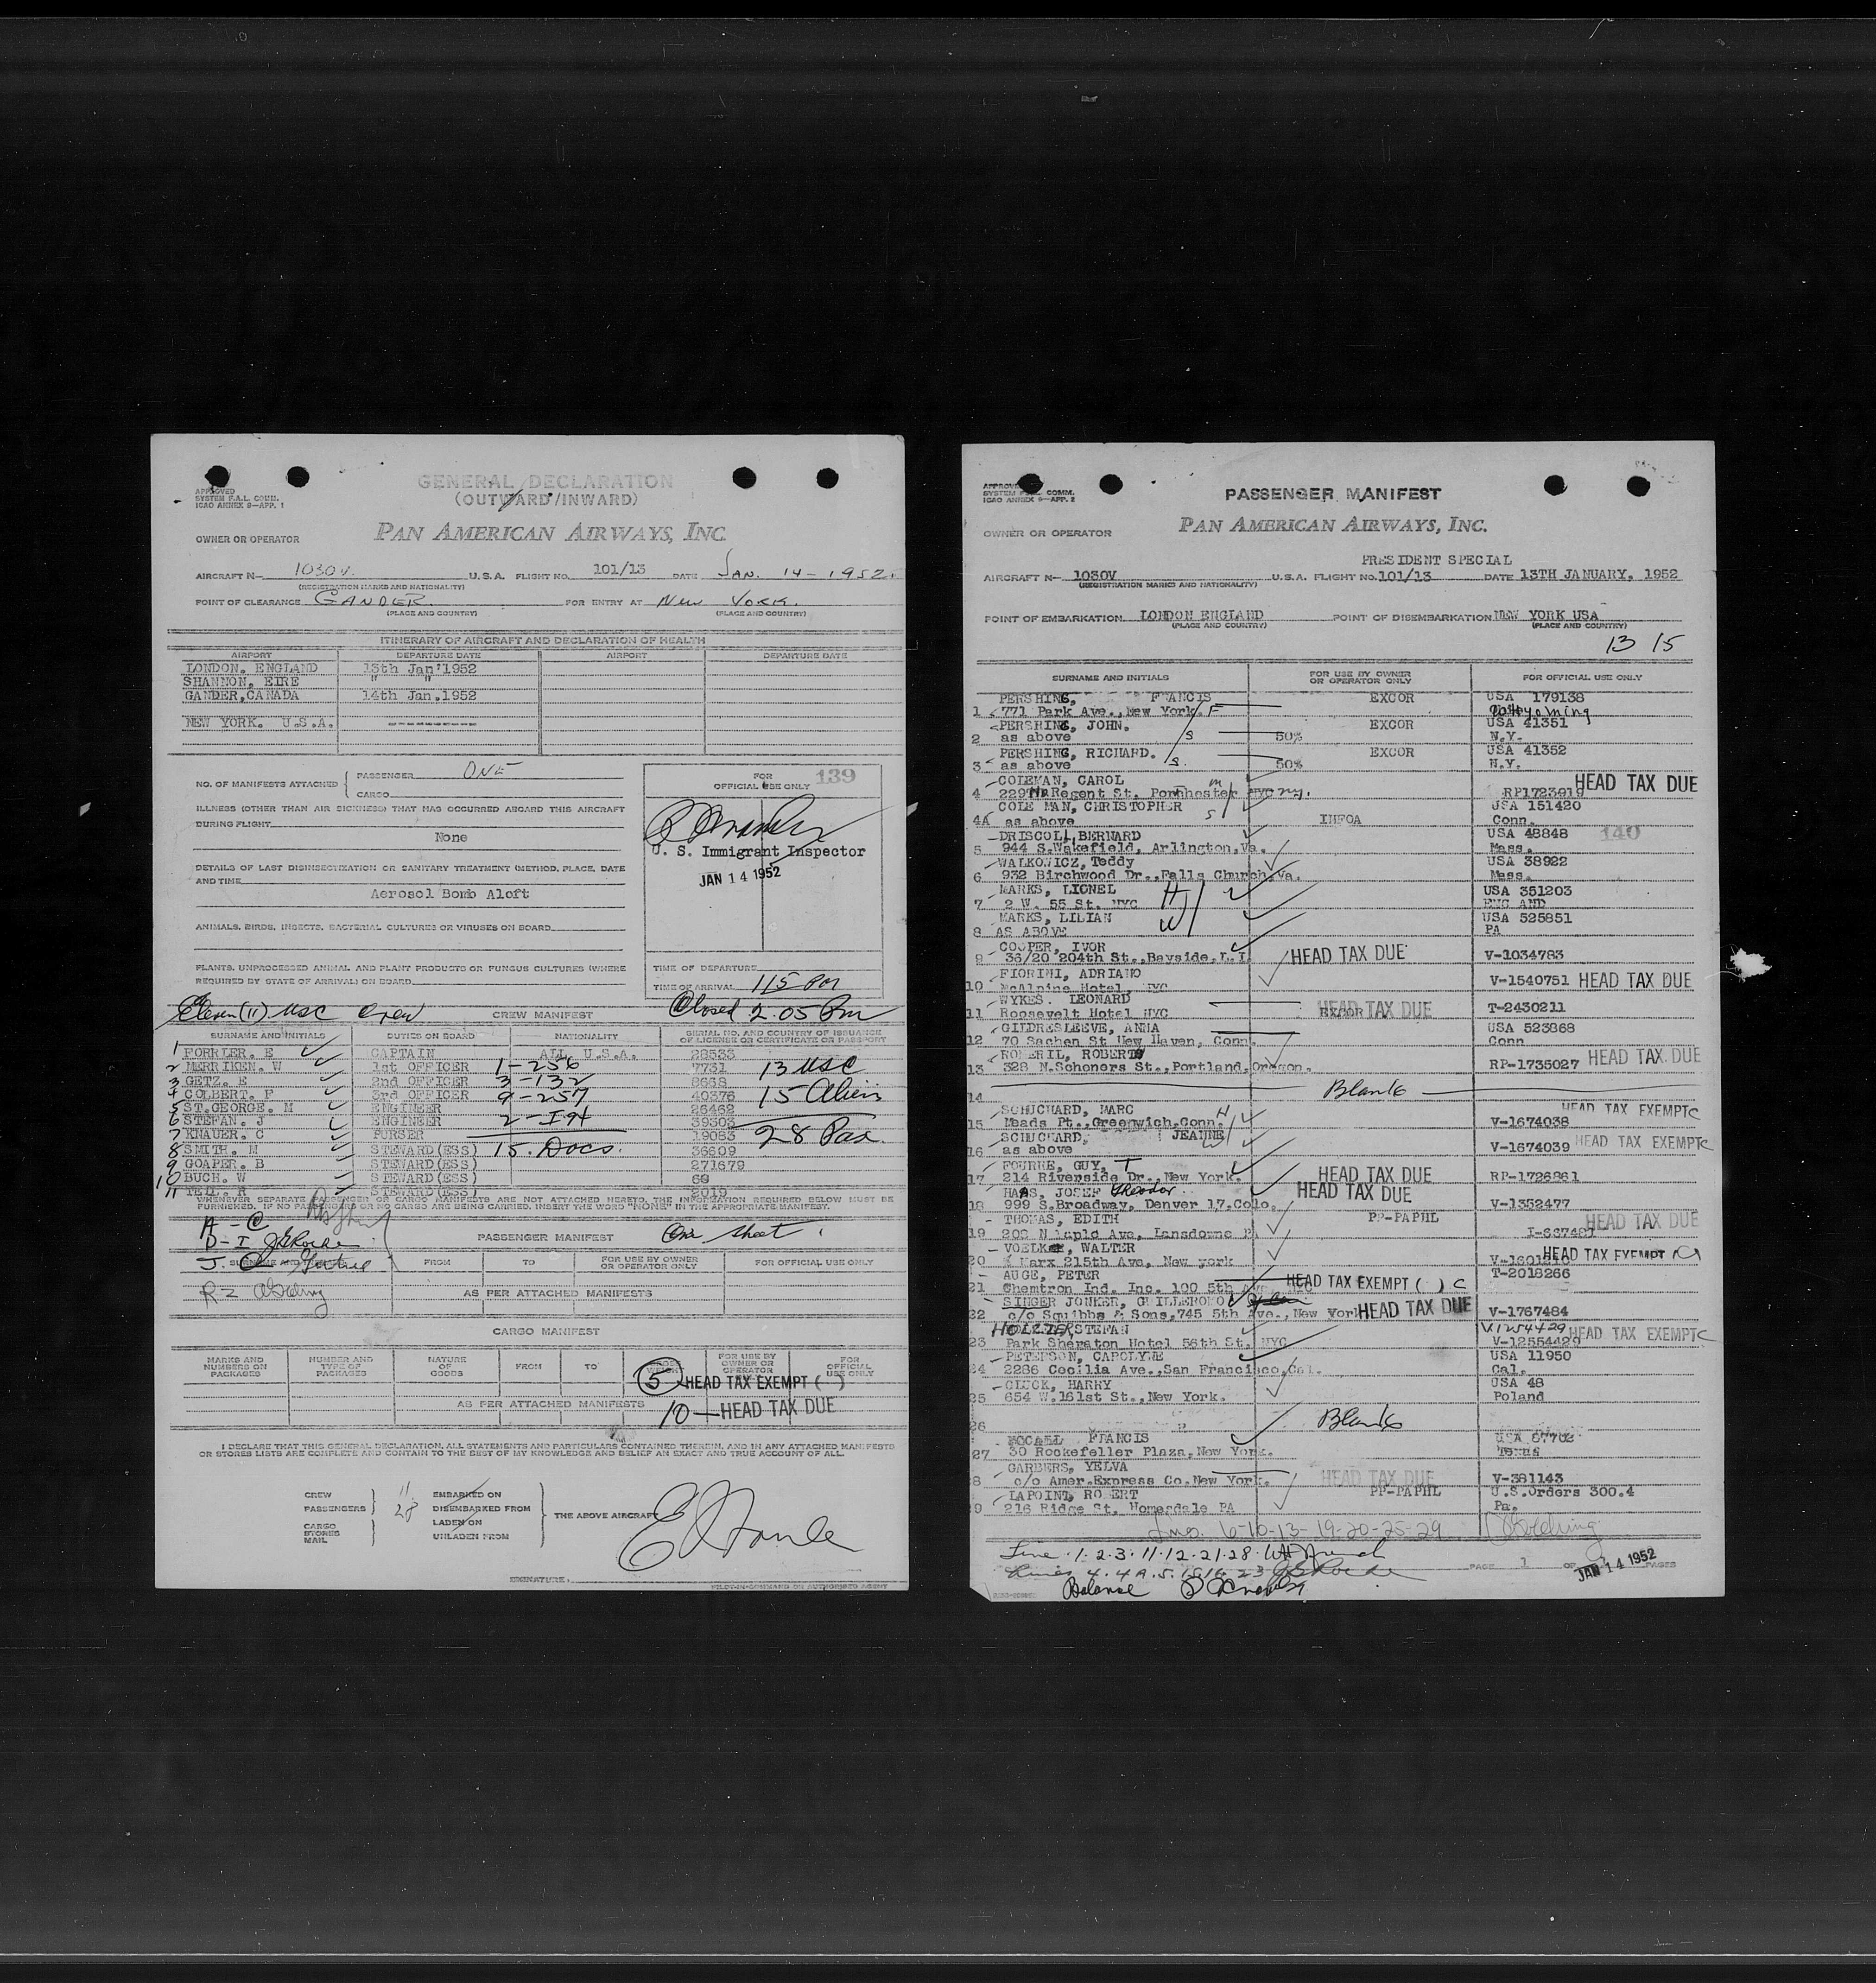 APPROVED
SYSTEM F.A.L. COMM.
ICAO ANNEX 9—APP. 1
GENERAL DECLARATION
(OUTWARD/INWARD)
OWNER OR OPERATOR
PAN AMERICAN AIRWAYS, INC.
AIRCRAFT N— 1030V. U.S.A. FLIGHT NO. 101/13 DATE JAN. 14-1952.
(REGISTRATION MARKS AND NATIONALITY)
POINT OF CLEARANCE GANDER FOR ENTRY AT NEW YORK.
(PLACE AND COUNTRY) (PLACE AND COUNTRY)
ITINERARY OF AIRCRAFT AND DECLARATION OF HEALTH
AIRPORT DEPARTURE DATE AIRPORT DEPARTURE DATE
LONDON. ENGLAND 13th Jan'1952
SHANNON, EIRE " "
GANDER,CANADA 14th Jan.1952
NEW YORK. U.S.A. -----
NO. OF MANIFESTS ATTACHED PASSENGER ONE
CARGO
FOR OFFICIAL USE ONLY 139
ILLNESS (OTHER THAN AIR SICKNESS) THAT HAS OCCURRED ABOARD THIS AIRCRAFT
DURING FLIGHT
None
U. S. Immigrant Inspector
JAN 14 1952
DETAILS OF LAST DISINSECTIZATION OR SANITARY TREATMENT (METHOD, PLACE, DATE
AND TIME
Aerosol Bomb Aloft
ANIMALS, BIRDS, INSECTS, BACTERIAL CULTURES OR VIRUSES ON BOARD
PLANTS, UNPROCESSED ANIMAL AND PLANT PRODUCTS OR FUNGUS CULTURES (WHERE
REQUIRED BY STATE OF ARRIVAL) ON BOARD
TIME OF DEPARTURE
TIME OF ARRIVAL 115 PM
Eleven (11) USC Crew CREW MANIFEST Closed 2.05 Pm
SURNAME AND INITIALS DUTIES ON BOARD NATIONALITY SERIAL NO. AND COUNTRY OF ISSUANCE
OF LICENSE OR CERTIFICATE OR PASSPORT
1 FORRLER. E CAPTAIN ALL U.S.A. 28533
2 MERRIKEN. W 1st OFFICER 1-256 7731 13 USC
3 GETZ. E 2nd OFFICER 3-132 8668
4 COLBERT. F 3rd OFFICER 9-257 40376 15 Aliens
5 ST.GEORGE. M ENGINEER 2-I94 26462
6 STEFAN. J ENGINEER 39303
7 KNAUER. C PURSER 19083 28 Pax.
8 SMITH. M STEWARD(ESS) 15. Docs. 36609
9 GOAPER. B STEWARD(ESS) 271679
10 BUCH. W STEWARD(ESS) 68
11 TEIL. R STEWARD(ESS) 2019
WHENEVER SEPARATE PASSENGER OR CARGO MANIFESTS ARE NOT ATTACHED HERETO, THE INFORMATION REQUIRED BELOW MUST BE
FURNISHED. IF NO PASSENGER OR NO CARGO ARE BEING CARRIED, INSERT THE WORD "NONE" IN THE APPROPRIATE MANIFEST.
PASSENGER MANIFEST One sheet
SURNAME AND INITIALS FROM TO FOR USE BY OWNER OR OPERATOR ONLY FOR OFFICIAL USE ONLY
AS PER ATTACHED MANIFESTS
CARGO MANIFEST
MARKS AND NUMBERS ON PACKAGES NUMBER AND TYPE OF PACKAGES NATURE OF GOODS FROM TO FOR USE BY OWNER OR OPERATOR ONLY FOR OFFICIAL USE ONLY
5 HEAD TAX EXEMPT ( )
AS PER ATTACHED MANIFESTS
10—HEAD TAX DUE
I DECLARE THAT THIS GENERAL DECLARATION, ALL STATEMENTS AND PARTICULARS CONTAINED THEREIN, AND IN ANY ATTACHED MANIFESTS
OR STORES LISTS ARE COMPLETE AND CONTAIN TO THE BEST OF MY KNOWLEDGE AND BELIEF AN EXACT AND TRUE ACCOUNT OF ALL.
CREW 11 EMBARKED ON
PASSENGERS 28 DISEMBARKED FROM
CARGO LADEN ON THE ABOVE AIRCRAFT
STORES
MAIL UNLADEN FROM
SIGNATURE
PILOT-IN-COMMAND OR AUTHORISED AGENT
APPROVED
SYSTEM F.A.L. COMM.
ICAO ANNEX 9—APP. 2
PASSENGER MANIFEST
OWNER OR OPERATOR
PAN AMERICAN AIRWAYS, INC.
PRESIDENT SPECIAL
AIRCRAFT N— 1030V U.S.A. FLIGHT NO. 101/13 DATE 13TH JANUARY, 1952
(REGISTRATION MARKS AND NATIONALITY)
POINT OF EMBARKATION LONDON ENGLAND POINT OF DISEMBARKATION NEW YORK USA
(PLACE AND COUNTRY) (PLACE AND COUNTRY)
13 15
SURNAME AND INITIALS FOR USE BY OWNER OR OPERATOR ONLY FOR OFFICIAL USE ONLY
PERSHING, FRANCIS EXCOR USA 179138
1 771 Park Ave., New York. F Wyoming
PERSHING, JOHN. EXCOR USA 41351
2 as above S 50% N.Y.
PERSHING, RICHARD. EXCOR USA 41352
3 as above S. 50% N.Y.
COLEMAN, CAROL m HEAD TAX DUE
4 229 N Regent St. Portchester NYC N.Y. RP1723619
COLE MAN, CHRISTOPHER S USA 151420
4A as above INFOA Conn.
DRISCOLL, BERNARD USA 48848 140
5 944 S.Wakefield, Arlington,Va. Mass.
WALKOWICZ, Teddy USA 38922
6 932 Birchwood Dr.,Falls Church,Va. Mass.
MARKS, LIONEL H USA 351203
7 2 W. 55 St. NYC ENGLAND
MARKS, LILIAN W USA 525851
8 AS ABOVE PA
COOPER, IVOR
9 36/20 204th St.,Bayside,L.I HEAD TAX DUE V-1034783
FIORINI, ADRIANO
10 McAlpine Hotel, NYC V-1540751 HEAD TAX DUE
WYKES. LEONARD
11 Roosevelt Hotel NYC EXCOR HEAD TAX DUE T-2430211
GILDRESLEEVE, ANNA USA 523868
12 70 Sachen St New Haven, Conn. Conn
ROMERIL, ROBERT HEAD TAX DUE
13 328 N.Schoners St.,Portland,Oregon. RP-1735027
14 Blank
SCHUCHARD, MARC H HEAD TAX EXEMPT C
15 Meads Pt.,Greenwich,Conn. V-1674038
SCHUCHARD, JEANNE W
16 as above V-1674039 HEAD TAX EXEMPT C
FOURRE, GUY, T
17 214 Riverside Dr.,New York. HEAD TAX DUE RP-1726861
HAAS, JOSEF Theodor HEAD TAX DUE
18 999 S.Broadway, Denver 17,Colo. V-1352477
THOMAS, EDITH PP-PAPHL HEAD TAX DUE
19 200 N Maple Ave, Lansdowne PA
VOELKER, WALTER HEAD TAX EXEMPT
20 4 Marx 215th Ave, New york
AUGE, PETER T-2018266
21 Chemtron Ind. Inc. 100 5th Ave NYC HEAD TAX EXEMPT ( ) C
SINGER JONKER, GUILLERMO
22 c/o Squibbs & Sons,745 5th Ave., New York HEAD TAX DUE V-1767484
HOLZER, STEFAN V.1254429 HEAD TAX EXEMPT C
23 Park Sheraton Hotel 56th St. NYC V-12554429
PETERSON, CAROLYNE USA 11950
24 2286 Cecilia Ave.,San Francisco,Cal. Cal.
GLUCK, HARRY USA 48
25 654 W.161st St.,New York. Poland
26 Blank
MCCALL FRANCIS USA 67702
27 30 Rockefeller Plaza,New York. Texas
GARBERS, YELVA
28 c/o Amer.Express Co.New York. HEAD TAX DUE V-381143
LAPOINT, ROBERT PP-PAPHL U.S.Orders 300.4
29 216 Ridge St. Homesdale PA Pa.
Lines. 6-10-13-19-20-25-29
Line .1.2.3.11.12.21.28.
Lines 4.4A.5.15.16.23
Balance
PAGE 1 OF PAGES
JAN 14 1952